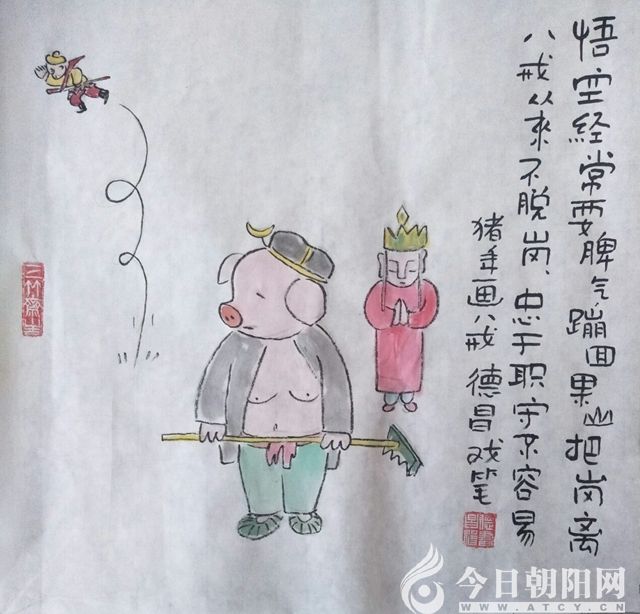 悟空经常耍脾气蹦回果山把岗离
八戒从来不脱岗、忠于职守不容易
猪年画八戒 德昌戏笔
今日朝阳网
WWW.ATCY.CN